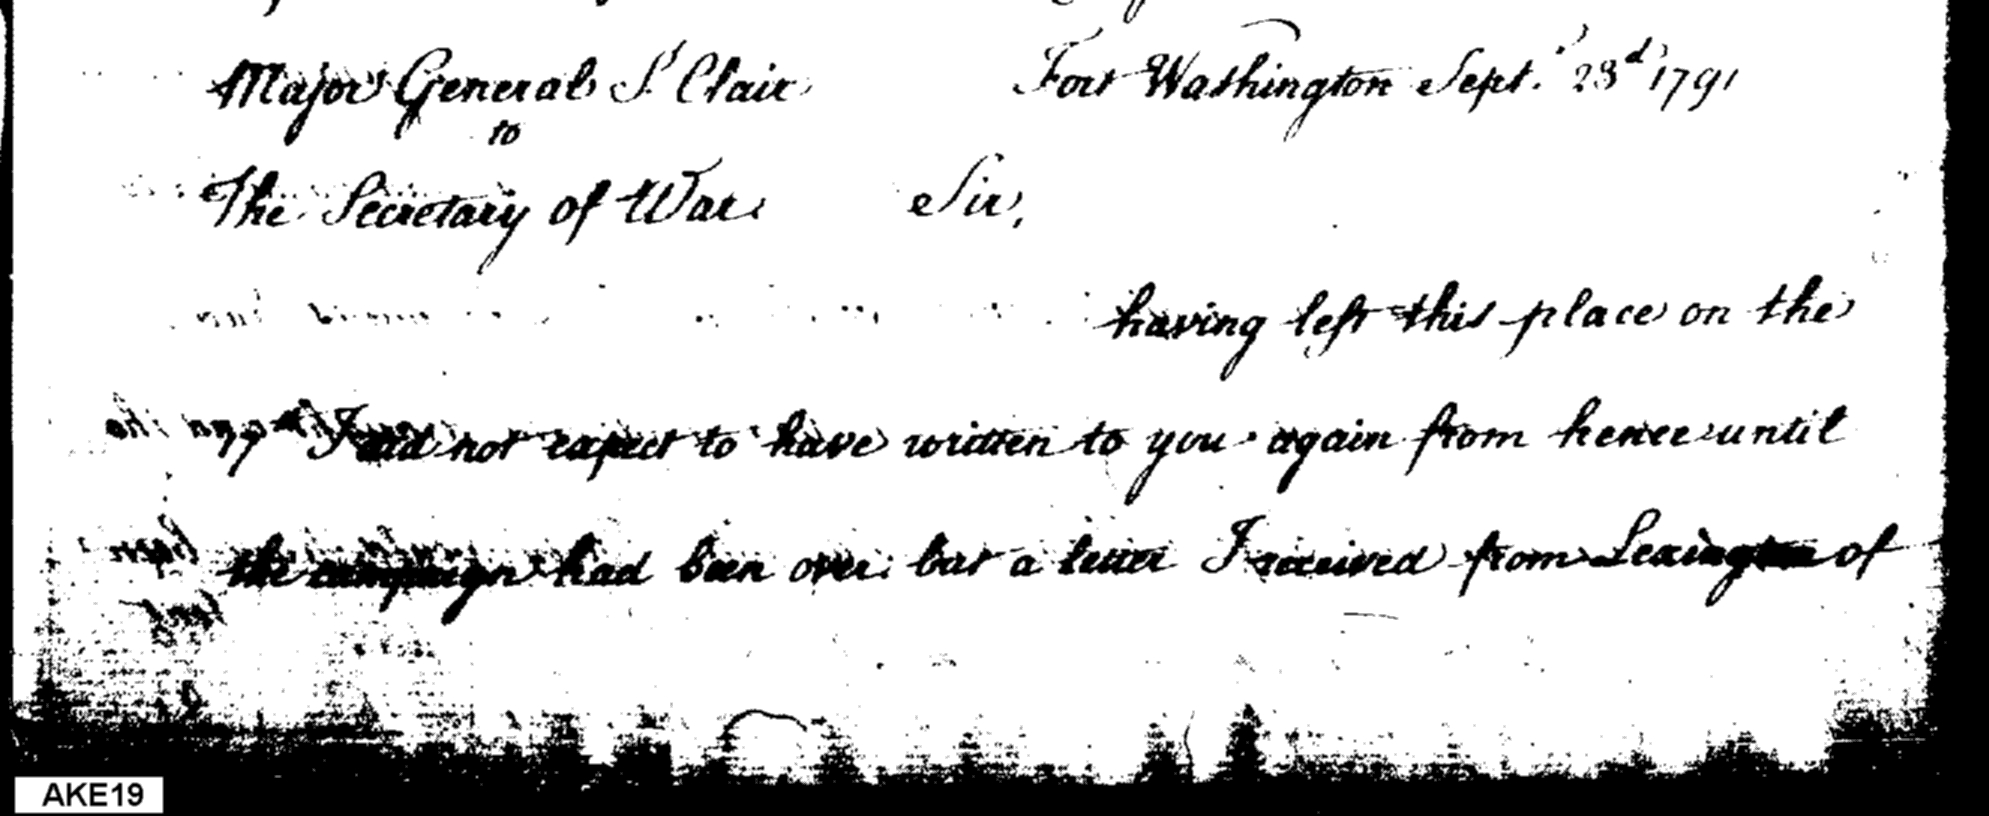 Major General St Clair Fort Washington Sept. 23d 1791
to
The Secretary of War Sir,
having left this place on the
17th I did not expect to have written to you again from hence until
the campaign had been over; but a letter I received from Lexington of
AKE19